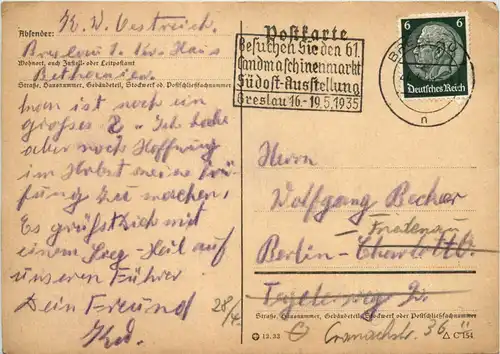 Absender: K. W. Oestreich.
Breslau 1. Kr. Haus
Wohnort, auch Zustell- oder Leitpostamt
Bethanien.
Straße, Hausnummer, Gebäudeteil, Stockwerk od. Postschließfachnummer
man ist noch ein
großes ?. Ich habe
aber noch Hoffnung
im Herbst meine Prü-
fung zu machen,
Es grüßt Dich mit
einem Sieg-Heil auf
unseren Führer
Dein Freund
28/4.
Postkarte
Besuchen Sie den 61.
Landmaschinenmarkt
Südost-Ausstellung
Breslau 16.-19.5.1935
n
6 6
Deutsches Reich
Herrn
Wolfgang Becher
Friedenau
Berlin-Charlottb.
Tegelerweg
Straße, Hausnummer, Gebäudeteil, Stockwerk oder Postschließfachnummer
Cranachstr. 36
12.33
C 154